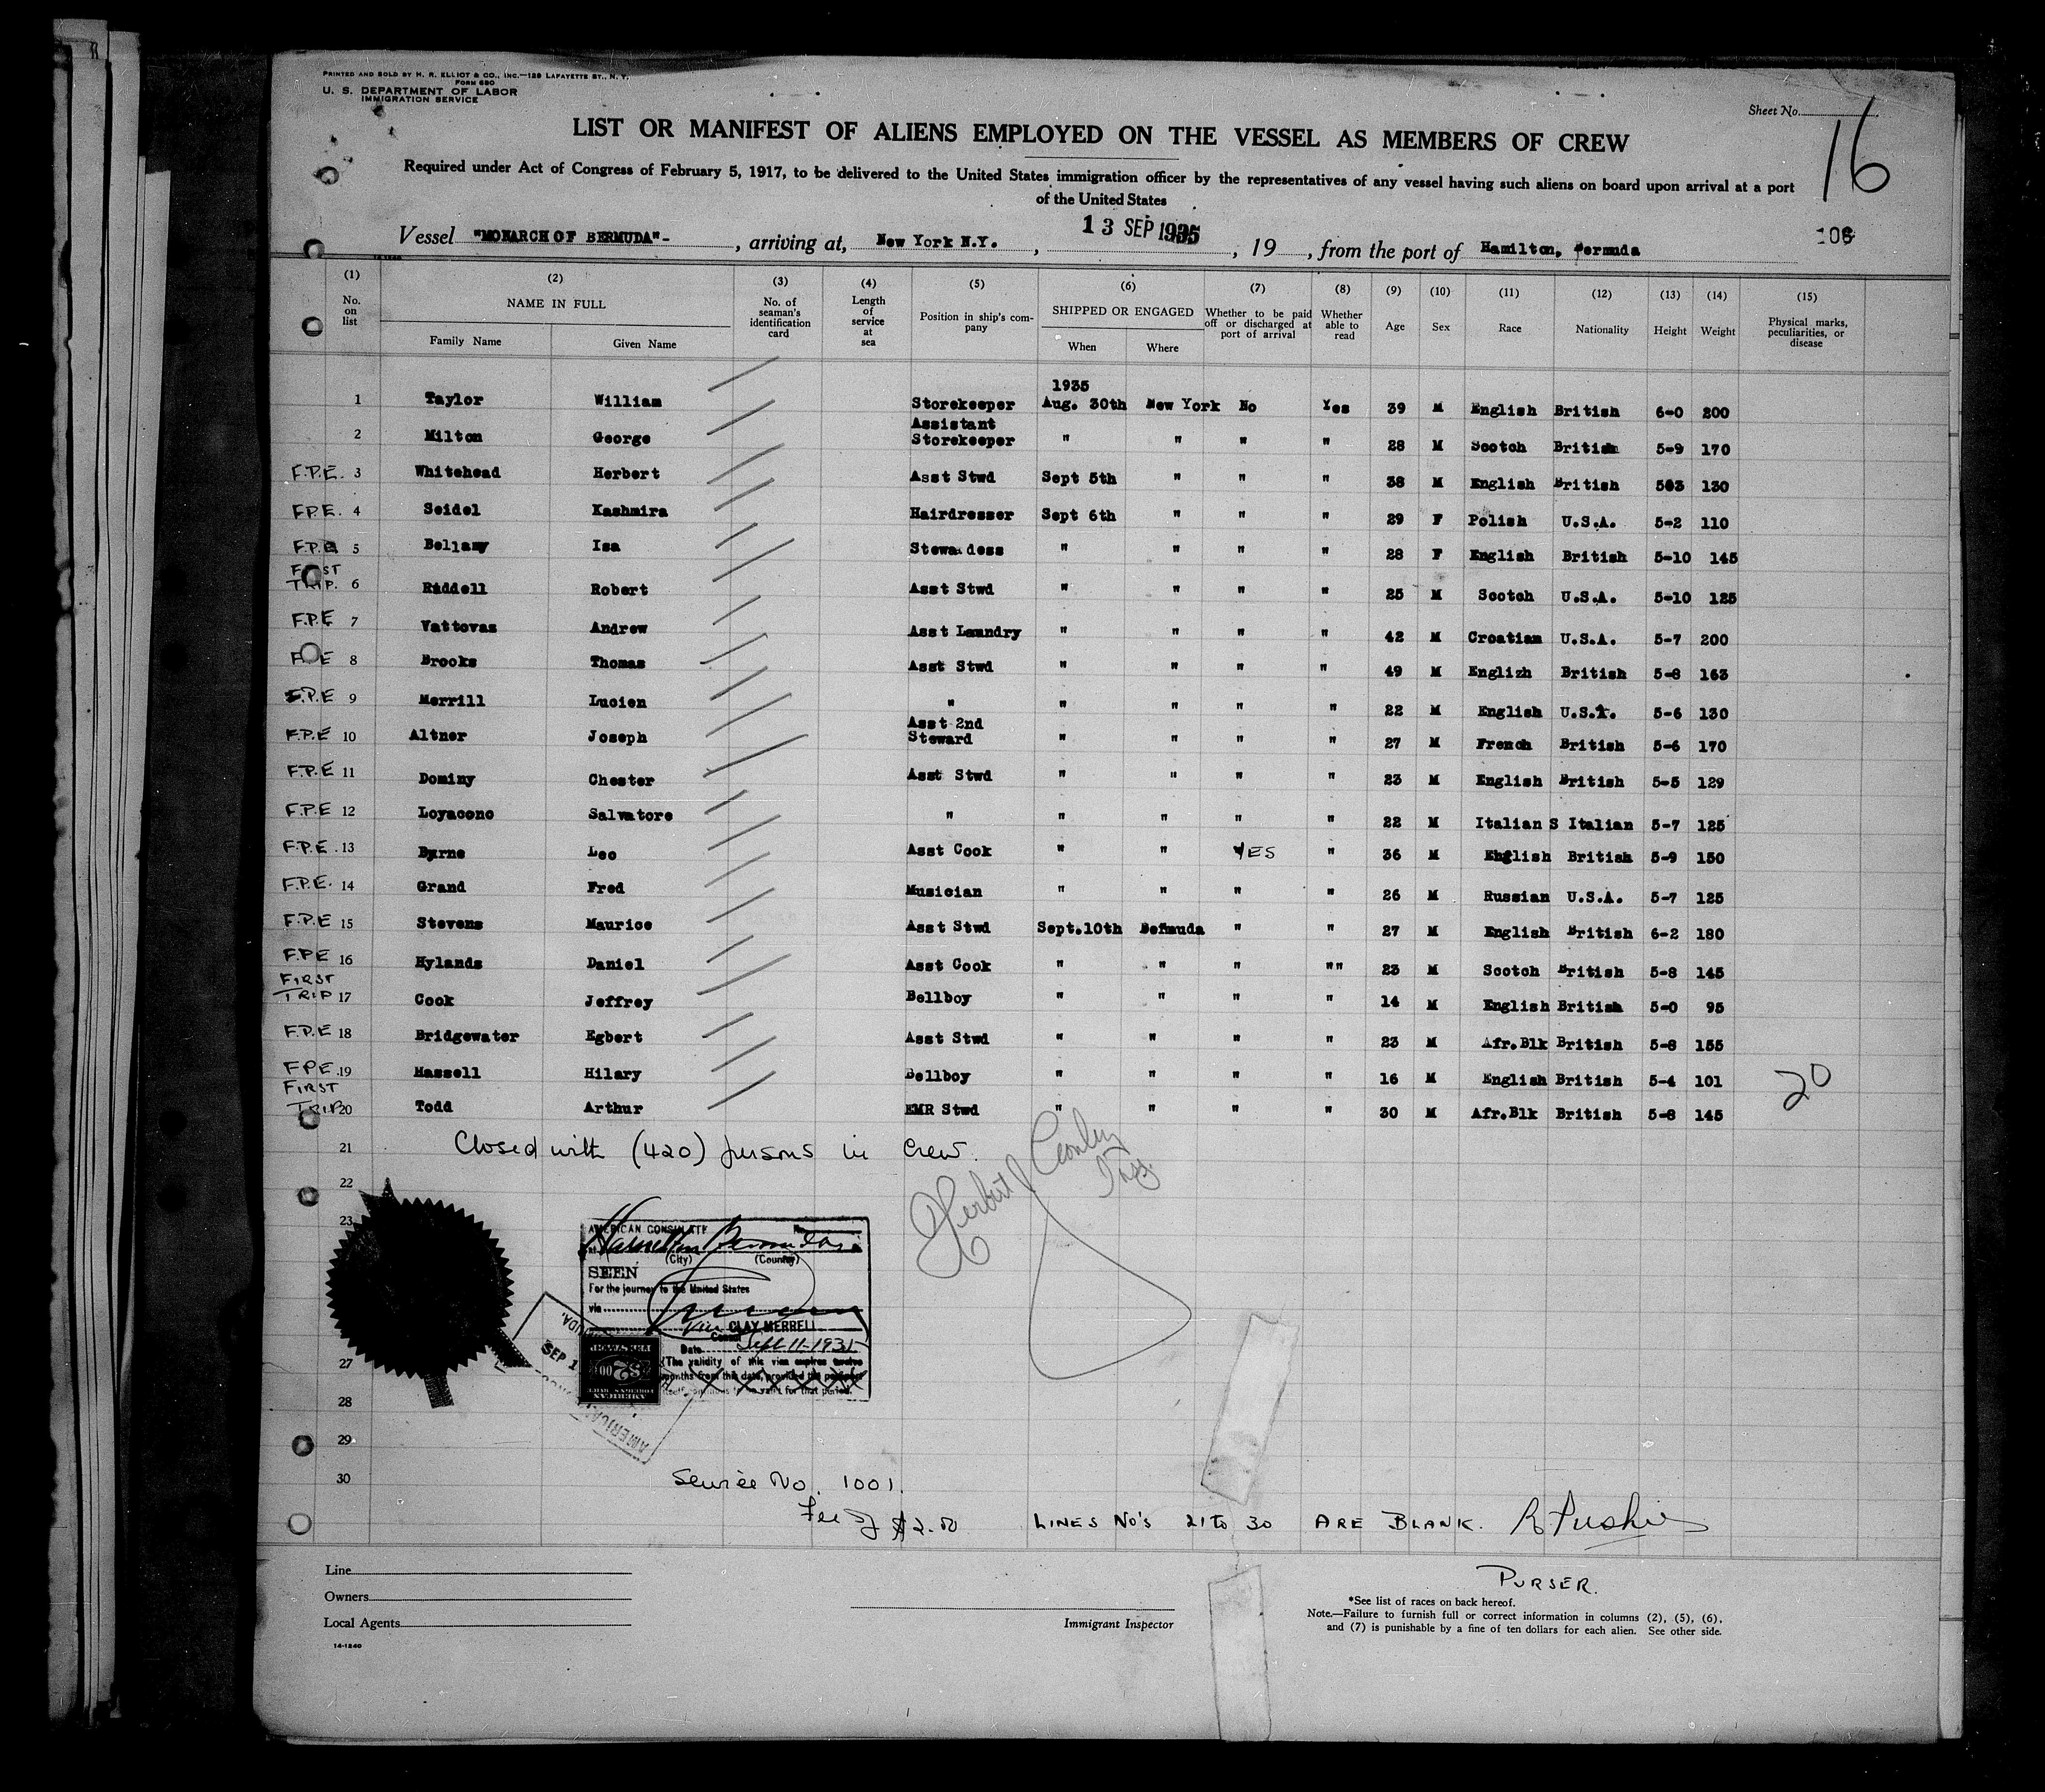 PRINTED AND SOLD BY H. R. ELLIOT & CO., INC.—129 LAFAYETTE ST., N. Y.
FORM 680
U. S. DEPARTMENT OF LABOR
IMMIGRATION SERVICE
Sheet No.
16
LIST OR MANIFEST OF ALIENS EMPLOYED ON THE VESSEL AS MEMBERS OF CREW
Required under Act of Congress of February 5, 1917, to be delivered to the United States immigration officer by the representatives of any vessel having such aliens on board upon arrival at a port
of the United States
Vessel "MONARCH OF BERMUDA"- , arriving at, New York N.Y. , 13 SEP 1935 , 19 , from the port of Hamilton, Bermuda
106
(1) (2) (3) (4) (5) (6) (7) (8) (9) (10) (11) (12) (13) (14) (15)
No. on list NAME IN FULL Family Name Given Name No. of seaman's identification card Length of service at sea Position in ship's company SHIPPED OR ENGAGED When Where Whether to be paid off or discharged at port of arrival Whether able to read Age Sex Race Nationality Height Weight Physical marks, peculiarities, or disease
1935
1 Taylor William Storekeeper Aug. 30th New York No Yes 39 M English British 6-0 200
2 Milton George Assistant Storekeeper " " " " 28 M Scotch British 5-9 170
F.P.E. 3 Whitehead Herbert Asst Stwd Sept 5th " " " 38 M English British 503 130
F.P.E. 4 Seidel Kashmira Hairdresser Sept 6th " " " 29 F Polish U.S.A. 5-2 110
F.P.E 5 Bellamy Isa Stewardess " " " " 28 F English British 5-10 145
FIRST TRIP. 6 Riddell Robert Asst Stwd " " " " 25 M Scotch U.S.A. 5-10 125
F.P.E 7 Vattovaz Andrew Asst Laundry " " " " 42 M Croatian U.S.A. 5-7 200
F.P.E 8 Brooks Thomas Asst Stwd " " " " 49 M Englizh British 5-8 163
F.P.E 9 Merrill Lucien " " " " " 22 M English U.S.A. 5-6 130
F.P.E 10 Altner Joseph Asst 2nd Steward " " " " 27 M French British 5-6 170
F.P.E 11 Dominy Chester Asst Stwd " " " " 23 M English British 5-5 129
F.P.E 12 Loyacono Salvatore " " " " " 22 M Italian S Italian 5-7 125
F.P.E. 13 Byrne Leo Asst Cook " " YES " 36 M English British 5-9 150
F.P.E. 14 Grand Fred Musician " " " " 26 M Russian U.S.A. 5-7 125
F.P.E 15 Stevens Maurice Asst Stwd Sept.10th Bermuda " " 27 M English British 6-2 180
F.P.E 16 Hylands Daniel Asst Cook " " " "" 23 M Scotch British 5-8 145
FIRST TRIP 17 Cook Jeffrey Bellboy " " " " 14 M English British 5-0 95
F.P.E 18 Bridgewater Egbert Asst Stwd " " " " 23 M Afr.Blk British 5-8 155
F.P.E. 19 Hassell Hilary Bellboy " " " " 16 M English British 5-4 101
FIRST TRIP 20 Todd Arthur EMR Stwd " " " " 30 M Afr.Blk British 5-8 145
20
21 Closed with (420) persons in crew.
22
23
AMERICAN CONSULATE No.
at Hamilton Bermuda
(City) (Country)
SEEN
For the journey to the United States
via
CLAY MERRELL
Consul
Date Sept 11-1935
The validity of this visa expires twelve
months from this date, provided the passport
itself continues to be valid for that period.
AMERICAN
FOREIGN SERVICE
$2.00
FEE STAMP
SEP 1
AMERICAN
Herbert Insp.
27
28
29
30
Service No. 1001.
Fee of $2.00 LINES No's 21 to 30 ARE BLANK.
PURSER.
Line
Owners
Local Agents
14-1240
Immigrant Inspector
*See list of races on back hereof.
Note.—Failure to furnish full or correct information in columns (2), (5), (6),
and (7) is punishable by a fine of ten dollars for each alien. See other side.